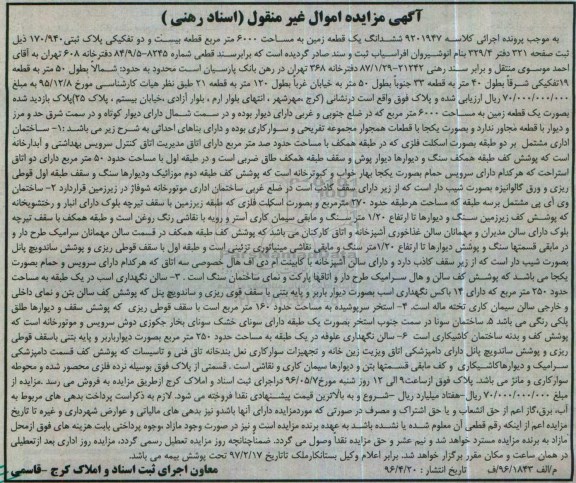 آگهی مزایده اموال غیر منقول (اسناد رهنی)
به موجب پرونده اجرائی کلاسه ۹۲۰۱۹۴۷ ششدانگ یک قطعه زمین به مساحت ۶۰۰۰ متر مربع قطعه بیست و دو تفکیکی پلاک ثبتی ۱۷۰/۹۴۰ ذیل
ثبت صفحه ۳۳۱ دفتر ۳۲۹/۴ بنام انوشیروان افراسیاب ثبت و سند صادر گردیده است که برابر سند قطعی شماره ۸۲۴۵-۸۴/۹/۵ دفترخانه ۶۰۸ تهران به آقای
احمد موسوی منتقل و برابر سند رهنی ۲۱۲۴۲-۸۷/۱/۲۹ دفترخانه ۳۶۸ تهران در رهن بانک پارسیان است. محدود به حدود: شمالاً بطول ۵۰ متر به قطعه
۱۹ تفکیکی شرقاً بطول ۴۰ متر به قطعه ۲۳ جنوباً بطول ۵۰ متر به خیابان غرباً بطول ۱۲۰ متر به قطعه ۲۱ طبق نظر هیات کارشناسی مورخ ۹۵/۱۲/۸ به مبلغ
۷۰/۰۰۰/۰۰۰/۰۰۰ ریال ارزیابی شده و پلاک فوق واقع است در نشانی (کرج، مهرشهر، انتهای بلوار ارم، بلوار آزادی، خیابان بیستم، پلاک ۲۵) پلاک بازدید شده
بصورت یک قطعه زمین به مساحت ۶۰۰۰ متر مربع که در ضلع جنوبی و غربی دارای دیوار بوده و در سمت شمال دارای دیوار کوتاه و در سمت شرق حد و مرز
و دیوار با قطعه مجاور ندارد و بصورت یکجا با قطعات همجوار مجموعه تفریحی و سوارکاری بوده و دارای بناهای احداثی به شرح زیر می باشد: ۱- ساختمان
اداری مشتمل بر دو طبقه بصورت اسکلت فلزی که در طبقه همکف با مساحت حدود صد متر مربع دارای اتاق مدیریت اتاق کنترل سرویس بهداشتی و آبدارخانه
است که پوشش کف طبقه همکف سنگ و دیوارها دیوار پوش و سقف طبقه همکف طاق ضربی است و در طبقه اول با مساحت حدود ۵۰ متر مربع دارای دو اتاق
استراحت که هر کدام دارای سرویس حمام بصورت یکجا بهار خواب و کبوترخانه است که پوشش کف طبقه دوم موزائیک و دیوارها سنگ و سقف طبقه اول قوطی
ریزی و ورق گالوانیزه بصورت شیب دار است که از زیر دارای سقف کاذب است در ضلع غربی ساختمان اداری موتورخانه شوفاژ در زیرزمین قرار دارد ۲- ساختمان
وی آی پی مشتمل بر سه طبقه که مساحت هر طبقه حدود ۲۷۰ متر مربع و بصورت اسکلت فلزی که طبقه زیرزمین با سقف تیرچه بلوک دارای انبار و رختشویخانه
که پوشش کف زیرزمین سنگ و دیوارها تا ارتفاع ۱/۲۰ متر سنگ و مابقی سیمان کاری آستر و رویه با نقاشی رنگ روغن است و طبقه همکف با سقف تیرچه
بلوک دارای سالن مدیران و مهمانان سالن غذاخوری آشپزخانه و اتاق کارکنان می باشد که پوشش کف طبقه همکف در قسمت سالن مهمانان سرامیک طرح دار و
در مابقی قسمتها سنگ و پوشش دیوارها تا ارتفاع ۱/۲۰ متر سنگ و مابقی نقاشی مینیاتوری تزئینی است و طبقه اول با سقف قوطی ریزی و پوشش ساندویچ پانل
بصورت شیب دار است که از زیر سقف کاذب دارد و دارای سالن آشپزخانه با کابینت ام دی اف هال خصوصی سه اتاق که هر کدام دارای سرویس و حمام بصورت
یکجا می باشند که پوشش کف سالن و هال سرامیک طرح دار و اتاقها پارکت و نمای ساختمان سنگ است. ۳- سالن نگهداری اسب در یک طبقه به مساحت
حدود ۲۵۰ متر مربع که دارای ۱۴ باکس نگهداری اسب بصورت دیوار باربر و پایه بتنی با سقف قوی ریزی و ساندویچ پنل که پوشش کف سالن بتن و نمای داخلی
و خارجی سالن سیمان کاری تخته ماله است. ۴- استخر سرپوشیده به مساحت حدود ۱۶۰ متر مربع است با سقف قوطی ریزی که پوشش سقف و دیوارها طلق
پلکی رنگی می باشد ۵. ساختمان سونا در سمت جنوب استخر بصورت یک طبقه دارای سونای خشک سونای بخار جکوزی دوش سرویس و موتورخانه است که
پوشش کف و بدنه ساختمان کاشیکاری است ۶- سالن نگهداری علوفه در یک طبقه به مساحت حدود ۲۵۰ متر مربع بصورت دیوار باربر و پایه بتنی با سقف قوطی
ریزی و پوشش ساندویچ پانل دارای دامپزشکی اتاق ویزیت زین خانه و تجهیزات سوارکاری نعل بندخانه اتاق فنی و تاسیسات که پوشش کف قسمت دامپزشکی
سرامیک و دیوارها کاشیکاری و کف مابقی قسمتها بتن و دیوارها سیمان کاری و نقاشی است. قسمتی از پلاک فوق بوسیله نرده فلزی محصور شده و محوطه
سوارکاری و مانژ می باشد. پلاک فوق از ساعت ۹ الی ۱۲ روز شنبه مورخ ۹۶/۰۵/۷ در اجرای ثبت اسناد و املاک کرج از طریق مزایده به فروش می رسد. مزایده از
مبلغ ۷۰/۰۰۰/۰۰۰/۰۰۰ ریال-هفتاد میلیارد ریال-شروع و به بالاترین قیمت پیشنهادی نقدا فروخته می شود. لازم به ذکر است پرداخت بدهی های مربوط به
آب، برق، گاز اعم از حق انشعاب و یا حق اشتراک و مصرف در صورتی که مورد مزایده دارای آنها باشد و نیز بدهی های مالیاتی و عوارض شهرداری و غیره تا تاریخ
مزایده اعم از اینکه رقم قطعی آن معلوم شده یا نشده باشد به عهده برنده مزایده است و نیز در صورت وجود مازاد، وجوه پرداختی بابت هزینه های فوق از محل
مازاد به برنده مزایده مسترد خواهد شد و نیم عشر و حق مزایده نقدا وصول می گردد. ضمناً چنانچه روز مزایده تعطیل رسمی گردد، مزایده روز اداری بعد از تعطیلی
در همان ساعت و مکان مقرر برگزار خواهد شد. برابر اعلام وکیل بستانکار ملک تا تاریخ ۹۷/۲/۱۷ تحت پوشش بیمه می باشد.
م/الف ۹۶/۱۸۴۳/ف تاریخ انتشار: ۹۶/۴/۲۰ معاون اجرای ثبت اسناد و املاک کرج - قاسمی